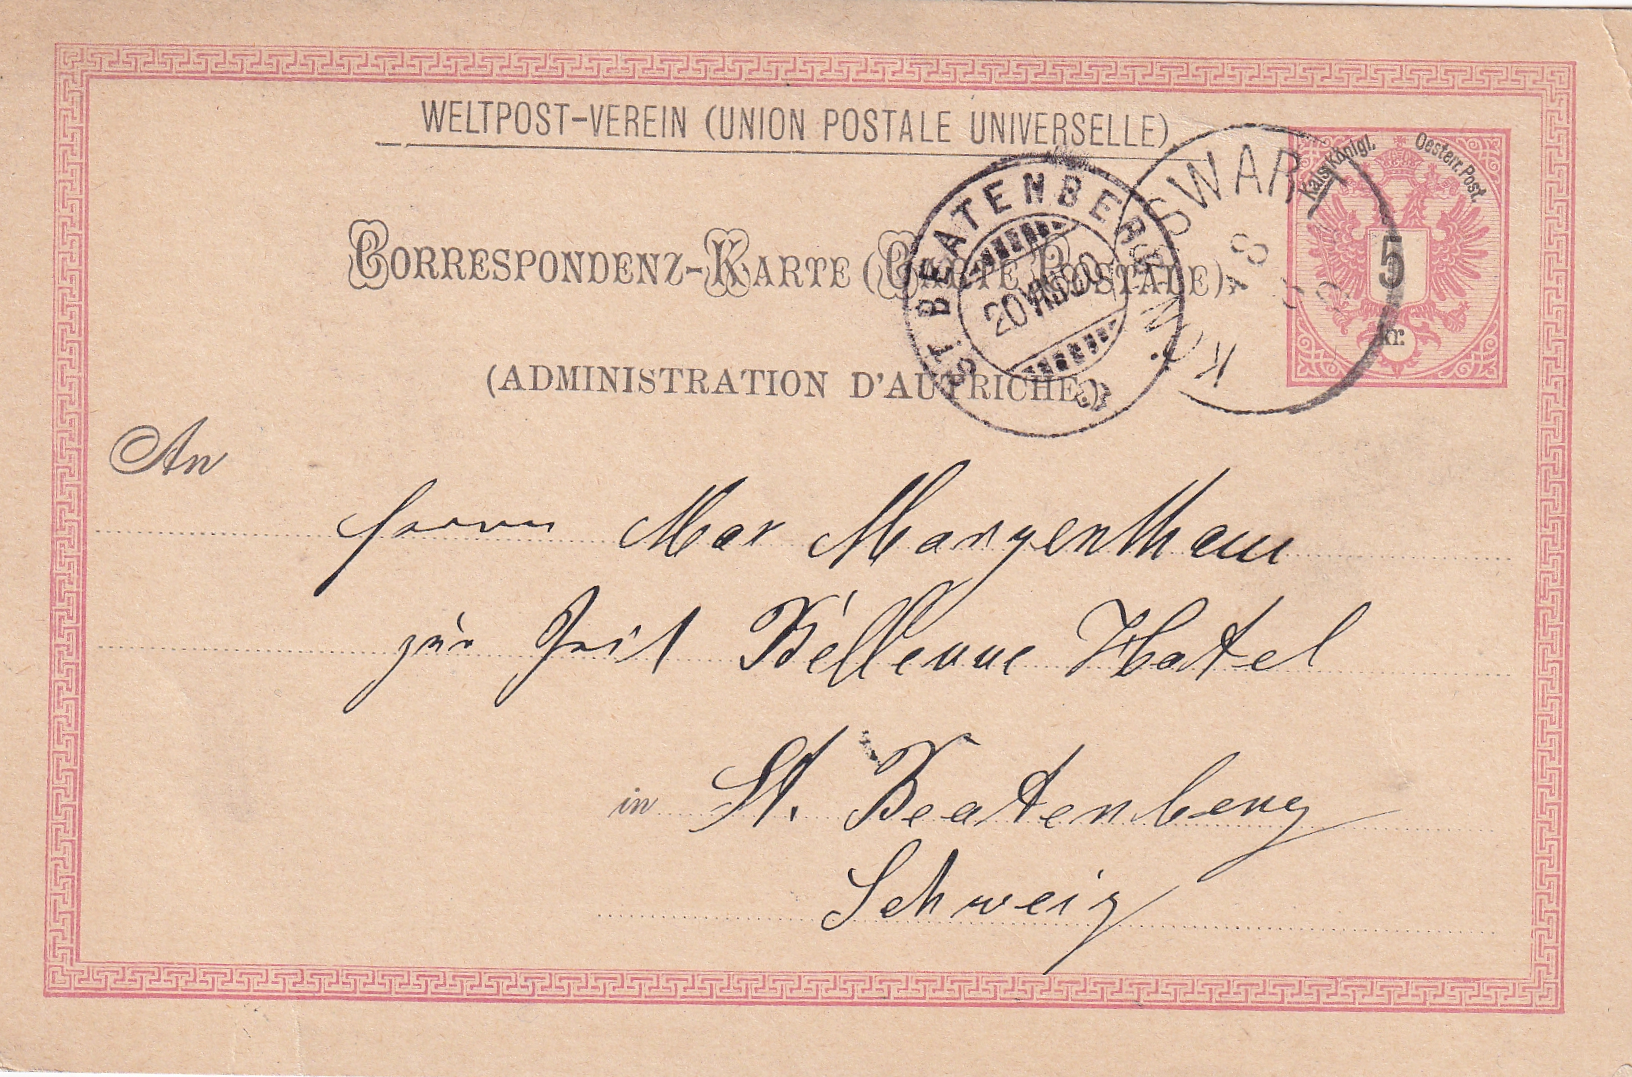 WELTPOST-VEREIN (UNION POSTALE UNIVERSELLE)
Kais. Königl. Oesterr. Post.
5
kr.
CORRESPONDENZ-KARTE (CARTE POSTALE)
(ADMINISTRATION D'AUTRICHE)
ST BEATENBERG
20 VIII 90
KÖNIGSWART
An
Herrn Max Morgenthau
zur Zeit Bellevue Hotel
in St. Beatenberg
Schweiz